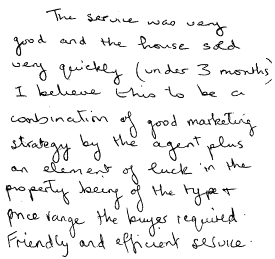 The service was very
good and the house sold
very quickly (under 3 months)
I believe this to be a
combination of good marketing
strategy by the agent plus
an element of luck in the
property being of the type +
price range the buyer required.
Friendly and efficient service.